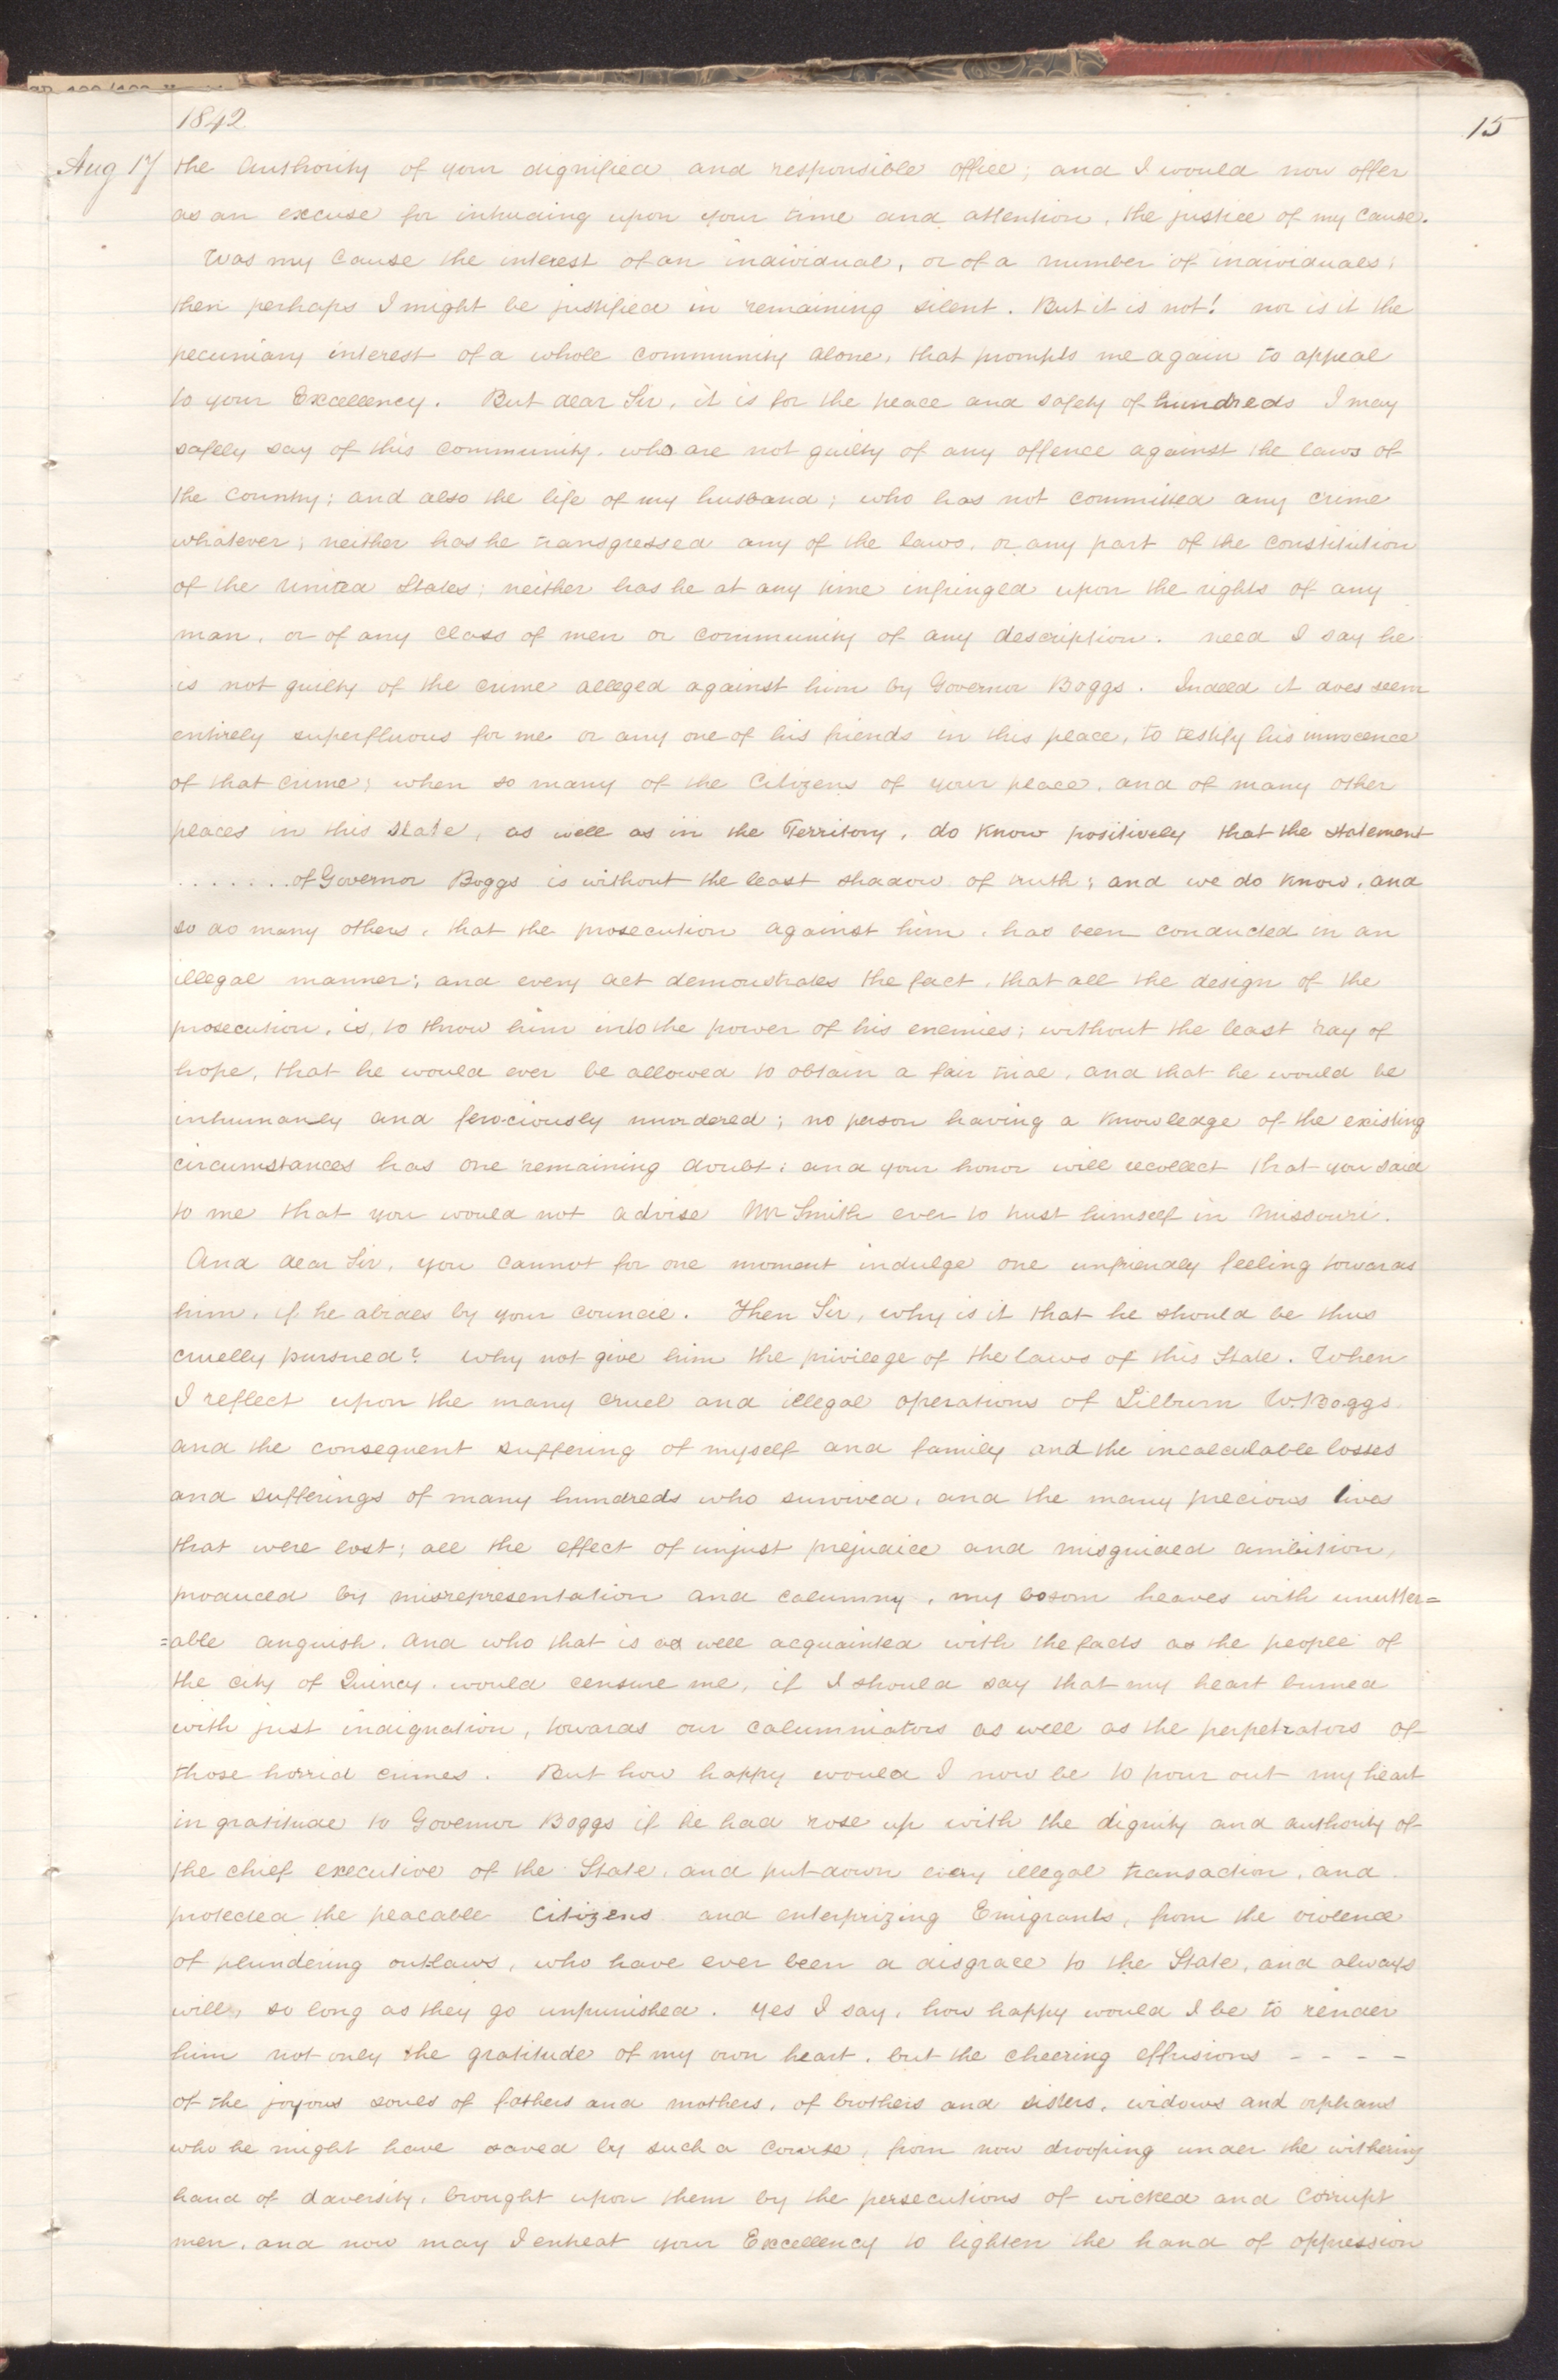 1842
15
Aug 17 the authority of your dignified and responsible office; and I would now offer
as an excuse for intruding upon your time and attention, the justice of my cause.
Was my cause the interest of an individual, or of a number of individuals;
then perhaps I might be justified in remaining silent. But it is not! nor is it the
pecuniary interest of a whole community alone, that prompts me again to appeal
to your Excellency. But dear Sir, it is for the peace and safety of hundreds I may
safely say of this community, who are not guilty of any offence against the laws of
the country; and also the life of my husband; who has not committed any crime
whatever; neither has he transgressed any of the laws, or any part of the constitution
of the United States; neither has he at any time infringed upon the rights of any
man, or of any class of men or community of any description. need I say he
is not guilty of the crime alleged against him by Governor Boggs. Indeed it does seem
entirely superfluous for me or any one of his friends in this place, to testify his innocence
of that crime; when so many of the Citizens of your place, and of many other
places in this state, as well as in the Territory, do know positively that the statement
........of Governor Boggs is without the least shadow of truth; and we do know, and
so do many others, that the prosecution against him, has been conducted in an
illegal manner; and every act demonstrates the fact, that all the design of the
prosecution, is, to throw him into the power of his enemies; without the least ray of
hope, that he would ever be allowed to obtain a fair trial, and that he would be
inhumanly and ferociously murdered; no person having a knowledge of the existing
circumstances has one remaining doubt; and your honor will recollect that you said
to me that you would not advise Mr Smith ever to trust himself in Missouri.
And dear Sir, you cannot for one moment indulge one unfriendly feeling towards
him, if he abides by your council. Then Sir, why is it that he should be thus
cruelly pursued? why not give him the privilege of the laws of this State. When
I reflect upon the many cruel and illegal operations of Lilburn W. Boggs
and the consequent suffering of myself and family and the incalculable losses
and sufferings of many hundreds who survived, and the many precious lives
that were lost; all the effect of unjust prejudice and misguided ambition,
produced by misrepresentation and calumny, my bosom heaves with unutter=
=able anguish. And who that is as well acquainted with the facts as the people of
the city of Quincy, would censure me, if I should say that my heart burned
with just indignation, towards our calumniators as well as the perpetrators of
those horrid crimes. But how happy would I now be to pour out my heart
in gratitude to Governor Boggs if he had rose up with the dignity and authority of
the chief executive of the State, and put down every illegal transaction, and
protected the peacable citizens and enterprizing Emigrants, from the violence
of plundering outlaws, who have ever been a disgrace to the State, and always
will, so long as they go unpunished. Yes I say, how happy would I be to render
him not only the gratitude of my own heart, but the cheering effusions - - - -
of the joyous souls of fathers and mothers, of brothers and sisters, widows and orphans
who he might have saved by such a course, from now drooping under the withering
hand of daversity, brought upon them by the persecutions of wicked and corrupt
men. and now may I entreat your Excellency to lighten the hand of oppression